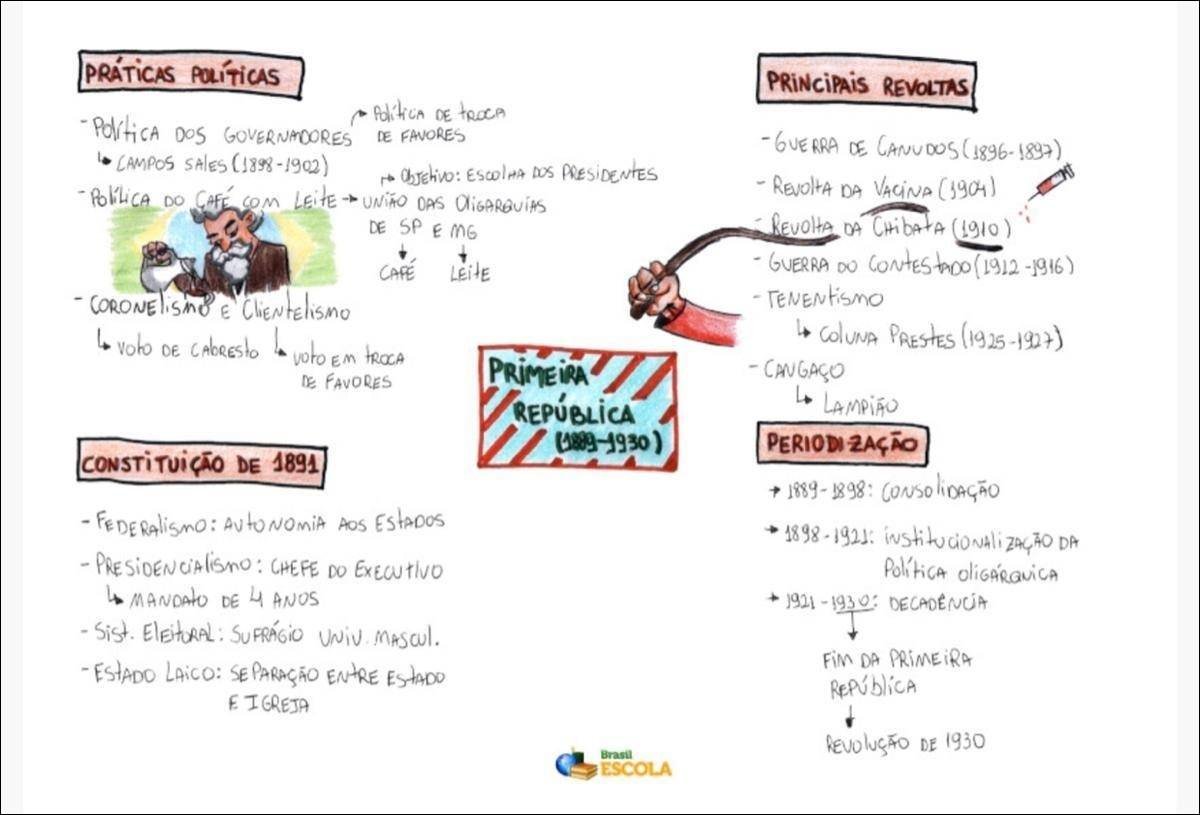 PRÁTICAS POLÍTICAS
- POLÍTICA DOS GOVERNADORES → POLÍTICA DE TROCA
DE FAVORES
↳ CAMPOS SALES (1898-1902)
↱ OBJETIVO: ESCOLHA DOS PRESIDENTES
- POLÍTICA DO CAFÉ COM LEITE → UNIÃO DAS OLIGARQUIAS
DE SP E MG
CAFÉ LEITE
- CORONELISMO E CLIENTELISMO
↳ VOTO DE CABRESTO ↳ VOTO EM TROCA
DE FAVORES
CONSTITUIÇÃO DE 1891
- FEDERALISMO: AUTONOMIA AOS ESTADOS
- PRESIDENCIALISMO: CHEFE DO EXECUTIVO
↳ MANDATO DE 4 ANOS
- SIST. ELEITORAL: SUFRÁGIO UNIV. MASCUL.
- ESTADO LAICO: SEPARAÇÃO ENTRE ESTADO
E IGREJA
PRIMEIRA
REPÚBLICA
(1889-1930)
PRINCIPAIS REVOLTAS
- GUERRA DE CANUDOS (1896-1897)
- REVOLTA DA VACINA (1904)
- REVOLTA DA CHIBATA (1910)
- GUERRA DO CONTESTADO (1912-1916)
- TENENTISMO
↳ COLUNA PRESTES (1925-1927)
- CANGAÇO
↳ LAMPIÃO
PERIODIZAÇÃO
→ 1889-1898: CONSOLIDAÇÃO
→ 1898-1921: INSTITUCIONALIZAÇÃO DA
POLÍTICA OLIGÁRQUICA
→ 1921-1930: DECADÊNCIA
FIM DA PRIMEIRA
REPÚBLICA
REVOLUÇÃO DE 1930
Brasil
ESCOLA